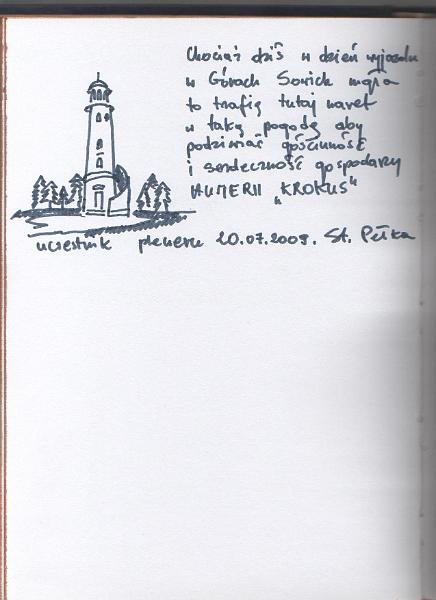 Chociaż dziś w dzień wyjazdu
w Górach Sowich mgła
to trafię tutaj nawet
w taką pogodę aby
podziwiać gościnność
i serdeczność gospodarzy
"KROKUS"
uczestnik pleneru 20.07.2009. St. Pełka